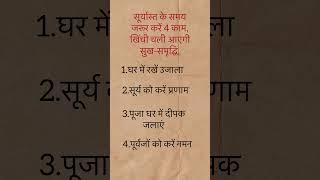 सूर्यास्त के समय
जरूर करें 4 काम,
खिंची चली आएगी
सुख-समृद्धि,
1.घर में रखें उजाला
2.सूर्य को करें प्रणाम
3.पूजा घर में दीपक
जलाएं
4.पूर्वजों को करें नमन